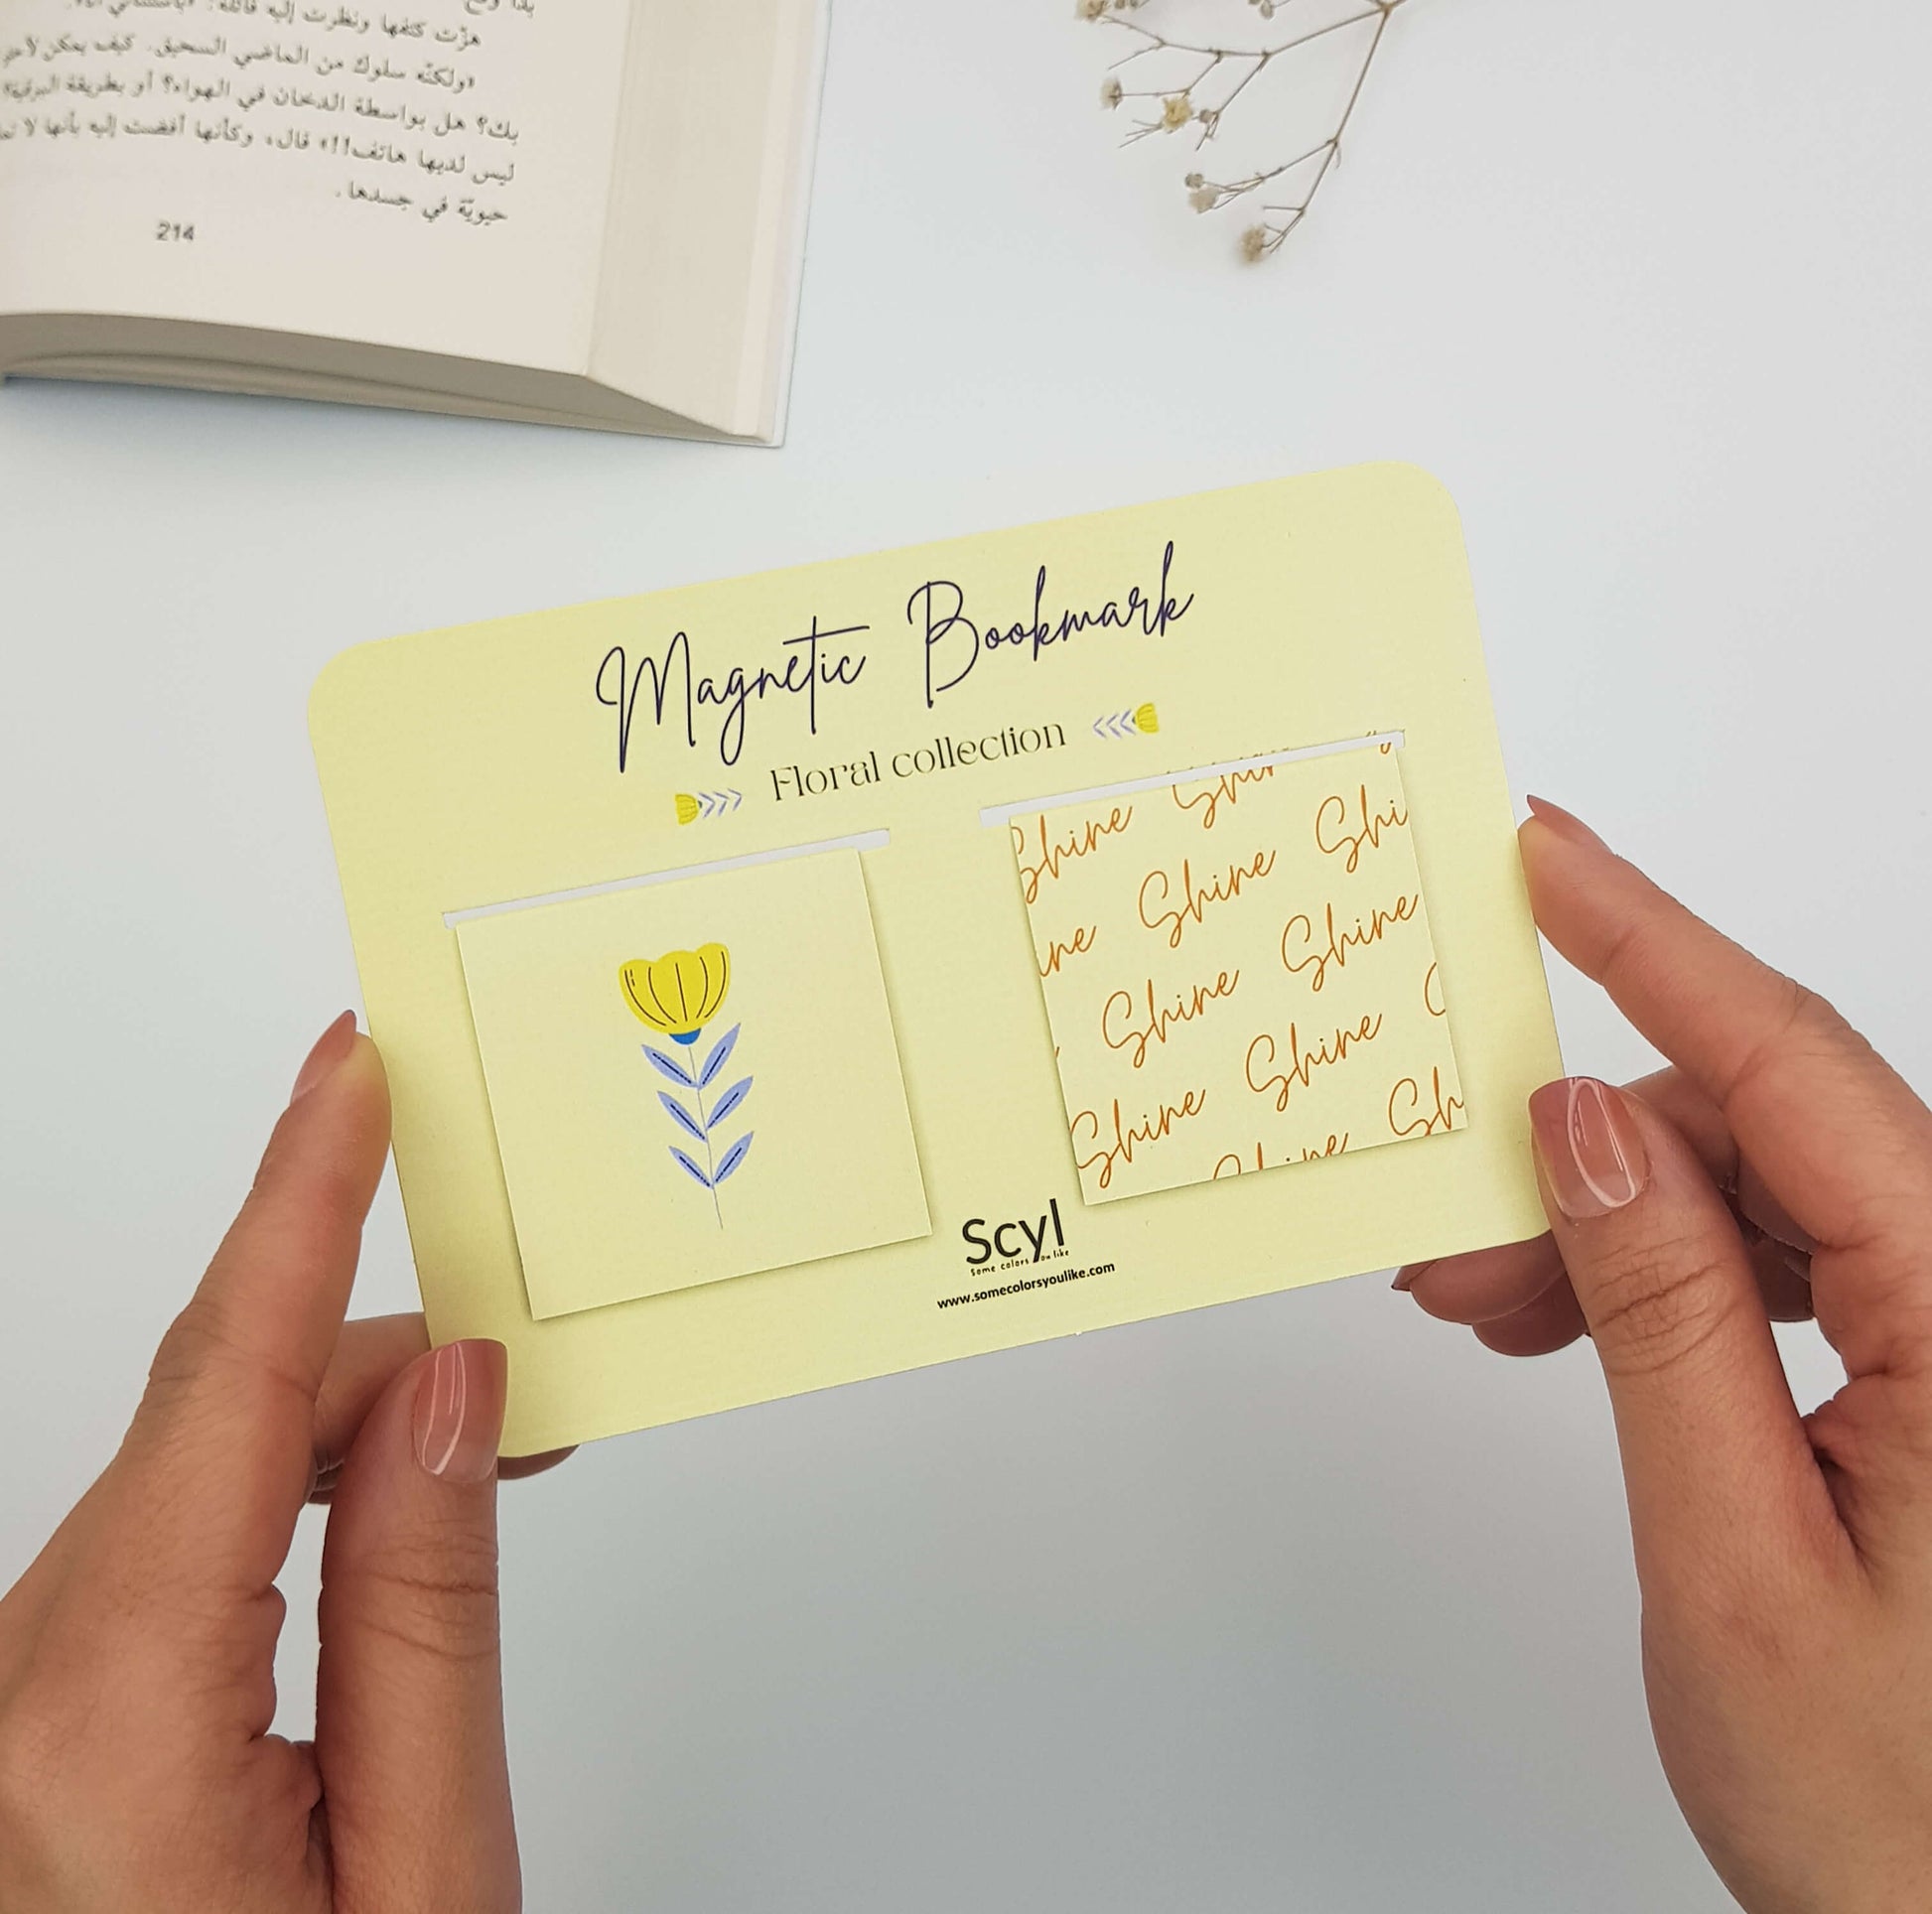 هزّت كتفها ونظرت إليه قائلة:
«ولكنّه سلوك من الماضي السحيق. كيف يمكن
بك؟ هل بواسطة الدخان في الهواء؟ أو بطريقة البرقية
ليس لديها هاتف!!» قال، وكأنها أفضت إليه بأنها لا
حيويّة في جسدها.
214
Magnetic Bookmark
Floral collection
Shine
Shine Shi
ne Shine Shine
Shine Shine
Shine Sh
Scyl
Some colors you like
www.somecolorsyoulike.com